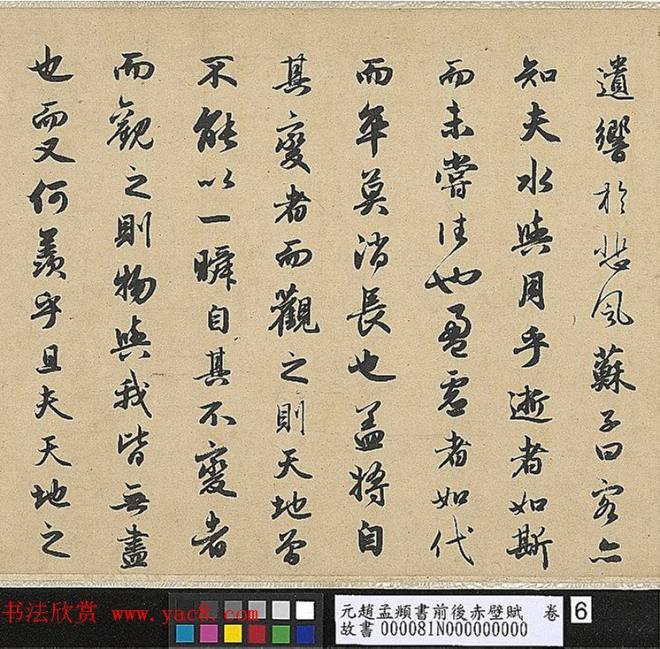 遺響於悲風蘇子曰客亦
知夫水與月乎逝者如斯
而未嘗往也盈虛者如代
而卒莫消長也蓋將自
其變者而觀之則天地曾
不能以一瞬自其不變者
而觀之則物與我皆無盡
也而又何羨乎且夫天地之
书法欣赏 www.yac8.com
元趙孟頫書前後赤壁賦 卷 6
故書 000081N000000000